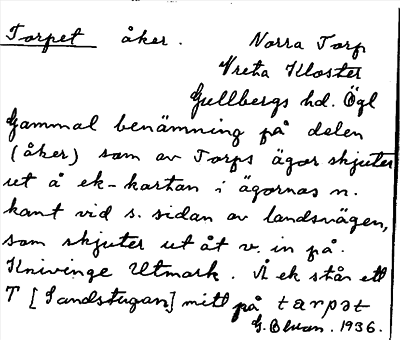 Torpet åker. Norra Torp
Vreta Kloster
Gullbergs hd. Ögl
Gammal benämning på delen
(åker) som av Torps ägor skjuter
ut å ek-kartan i ägornas n.
kant vid s. sidan av landsvägen,
som skjuter ut åt v. in på.
Knivinge Utmark. Å ek står ett
T [Landstugan] mitt på tarpət
G. 1936.